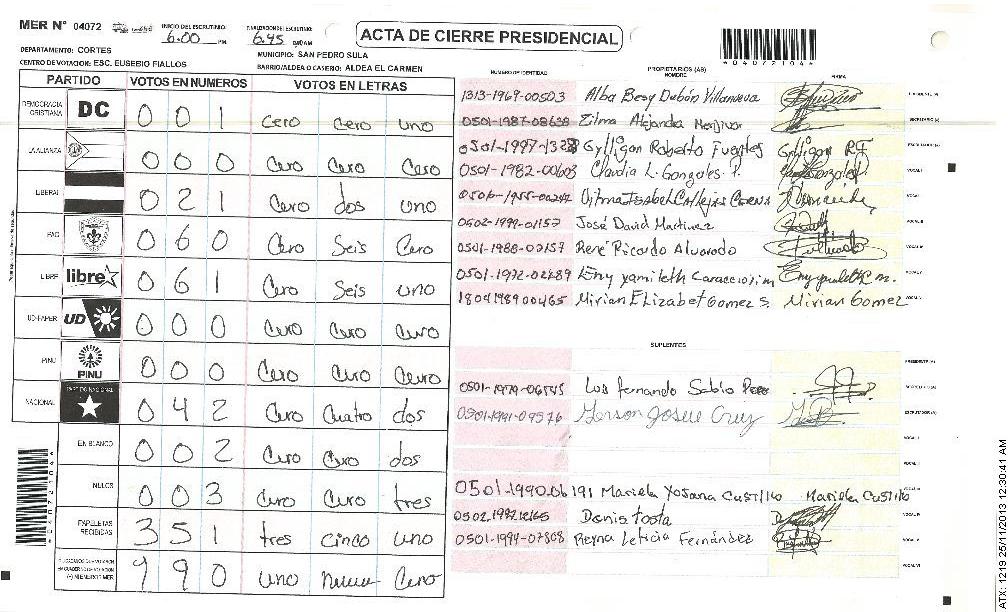 MER N° 04072
INICIO DEL ESCRUTINIO: 6:00 PM
FINALIZACION DEL ESCRUTINIO: 6:45
ACTA DE CIERRE PRESIDENCIAL
DEPARTAMENTO: CORTES
MUNICIPIO: SAN PEDRO SULA
CENTRO DE VOTACION: ESC. EUSEBIO FIALLOS
BARRIO/ALDEA O CASERIO: ALDEA EL CARMEN
PARTIDO VOTOS EN NUMEROS VOTOS EN LETRAS
DEMOCRACIA CRISTIANA DC 0 0 1 cero cero uno
LA ALIANZA 0 0 0 Cero Cero Cero
LIBERAL 0 2 1 Cero dos uno
PAC 0 6 0 Cero Seis Cero
LIBRE libre 0 6 1 Cero Seis uno
UD-FAPER UD 0 0 0 Cero Cero Cero
PINU PINU 0 0 0 Cero Cero Cero
NACIONAL PARTIDO NACIONAL 0 4 2 Cero Cuatro dos
EN BLANCO 0 0 2 Cero Cero dos
NULOS 0 0 3 Cero Cero tres
PAPELETAS RECIBIDAS 3 5 1 tres cinco uno
1 9 0 uno nueve Cero
NUMERO DE IDENTIDAD PROPIETARIOS (AS) NOMBRE FIRMA
1313-1969-00503 Alba Besy Dubón Villanueva
0501-1987-08638 Zilma Alejandra Menjivar
Gylligan Roberto Fuentes Gylligan RF
0501-1982-00603 Claudia L. Gonzales P.
0502-1999-01157 José David Martinez
0501-1988-07157 René Ricardo Alvarado
0501-1972-02489 Eny yamileth
1804198900465 Mirian Elizabet Gomez S. Mirian Gomez
SUPLENTES
0501-1979-06545 Luis Fernando Sabio
0501-1991-09576 Gerson Josue Cruz
0501-1990-06191 Mariela Yosana Custillo Mariela Custillo
Denis Tosta
0501-1994-07808 Reyna Leticia Fernández
04072104
ATX: 1219 25/11/2013 12:30:41 AM